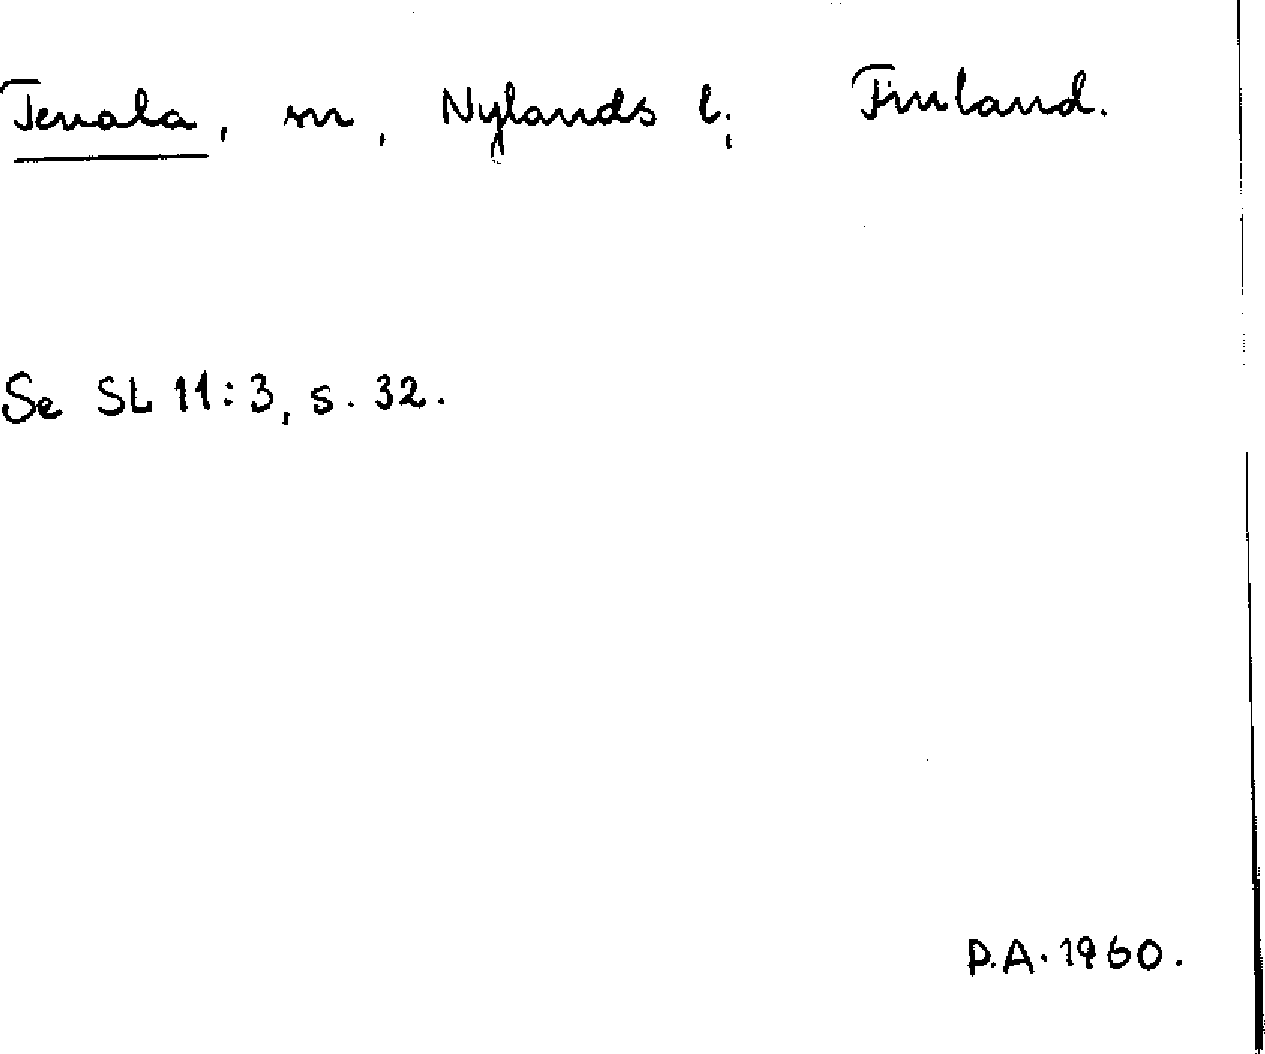 Tenala, sn, Nylands l., Finland.
Se SL 11:3, s. 32.
P.A. 1960.